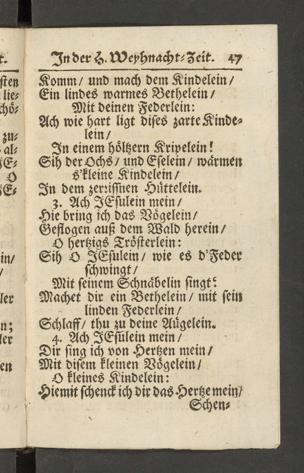 t.
sten
lie-
chö-
zu-
al-
JE-
O
JE-
in/
/
ler
n;
ler
en
In der H. Weyhnacht-Zeit. 47
Komm/ und mach dem Kindelein/
Ein lindes warmes Bethelein/
Mit deinen Federlein:
Ach wie hart ligt dises zarte Kinde-
lein/
In einem höltzern Kripelein!
Sih der Ochs/ und Eselein/ wärmen
s'kleine Kindelein/
In dem zerrißnen Hüttelein.
3. Ach JEsulein mein/
Hie bring ich das Vögelein/
Geflogen auß dem Wald herein/
O hertzigs Trösterlein:
Sih O JEsulein/ wie es d'Feder
schwingt/
Mit seinem Schnäbelin singt:
Machet dir ein Bethelein/ mit sein
linden Federlein/
Schlaff/ thu zu deine Äugelein.
4. Ach JEsulein mein/
Dir sing ich von Hertzen mein/
Mit disem kleinen Vögelein/
O kleines Kindelein:
Hiemit schenck ich dir das Hertze mein/
Schen-